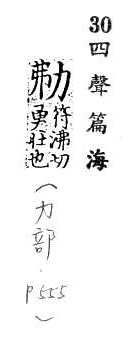 30四聲篇海
𠡂符沸切
勇壯也
（力部．
P555）